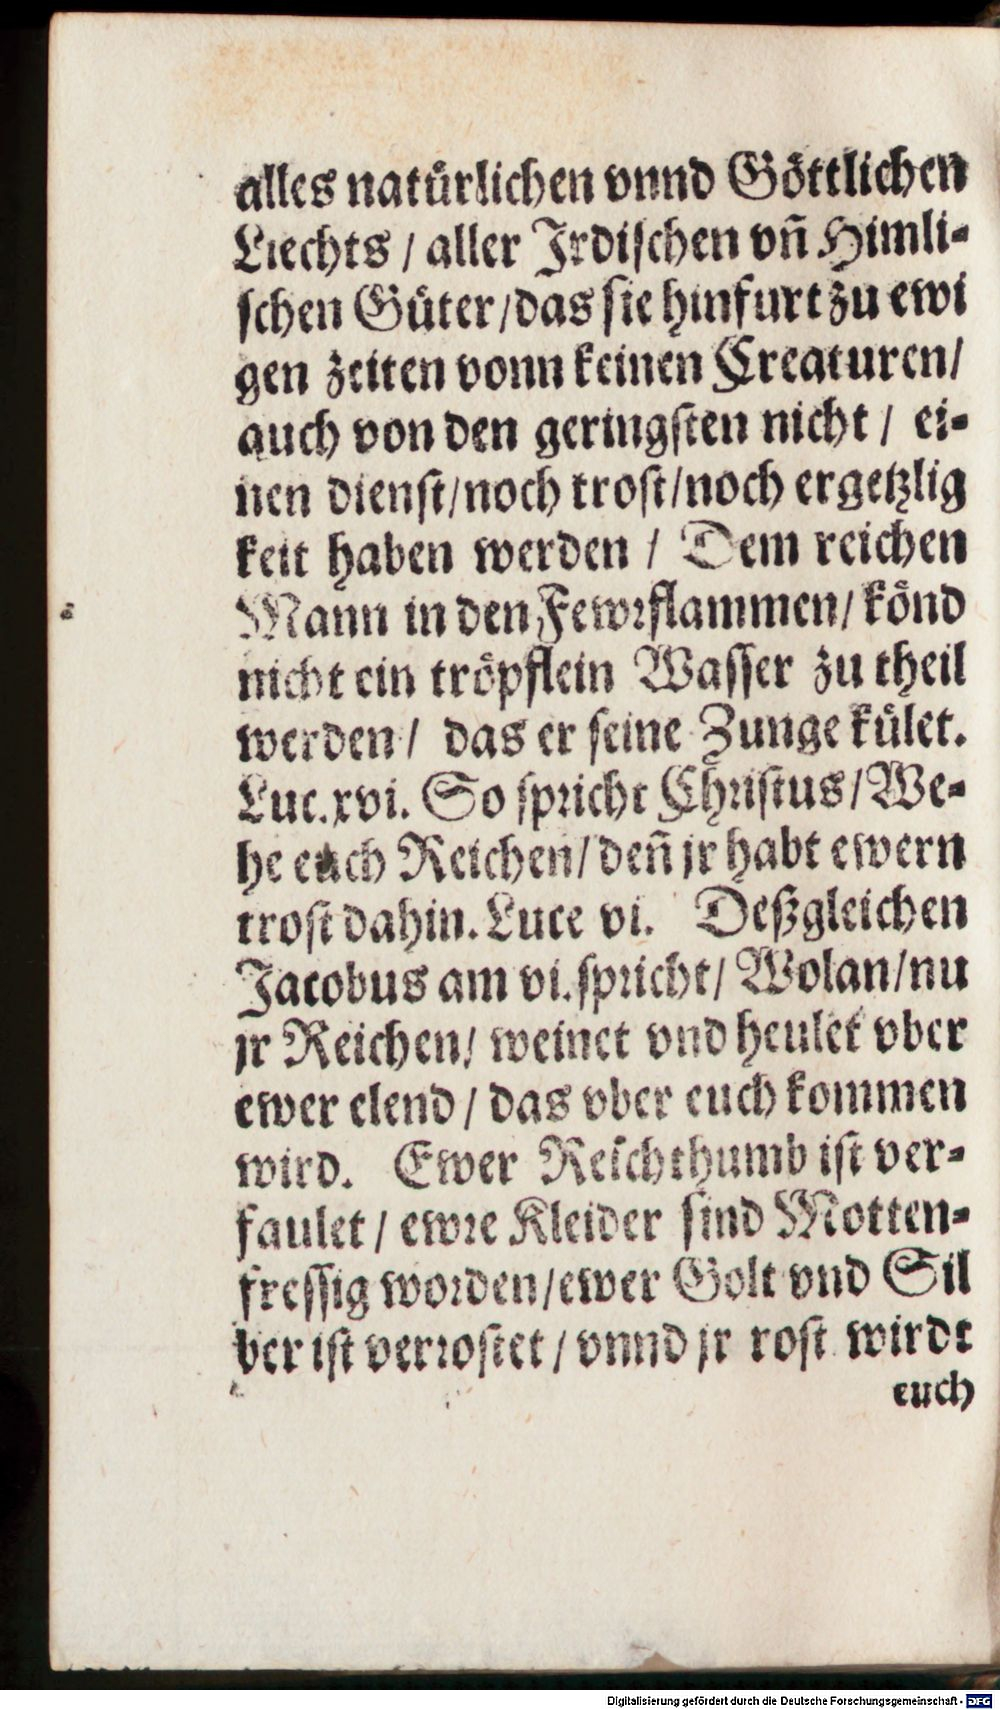 alles natürlichen vnnd Göttlichen
Liechts / aller Jrdischen vñ Himli-
schen Güter/das sie hinfurt zu ewi
gen zeiten vonn keinen Creaturen/
auch von den geringsten nicht / ei-
nen dienst/noch trost/noch ergetzlig
keit haben werden / Dem reichen
Mann in den Fewrflammen/ könd
nicht ein tröpflein Wasser zu theil
werden/ das er seine Zunge kület.
Luc.xvi. So spricht Christus/We-
he euch Reichen/ deñ jr habt ewern
trost dahin. Luce vi. Deßgleichen
Jacobus am vi.spricht/ Wolan/nu
jr Reichen/ weinet vnd heulet vber
ewer elend / das vber euch kommen
wird. Ewer Reichthumb ist ver-
faulet / ewre Kleider sind Motten-
fressig worden/ewer Golt vnd Sil
ber ist verrostet / vnnd jr rost wirdt
euch
Digitalisierung gefördert durch die Deutsche Forschungsgemeinschaft - DFG